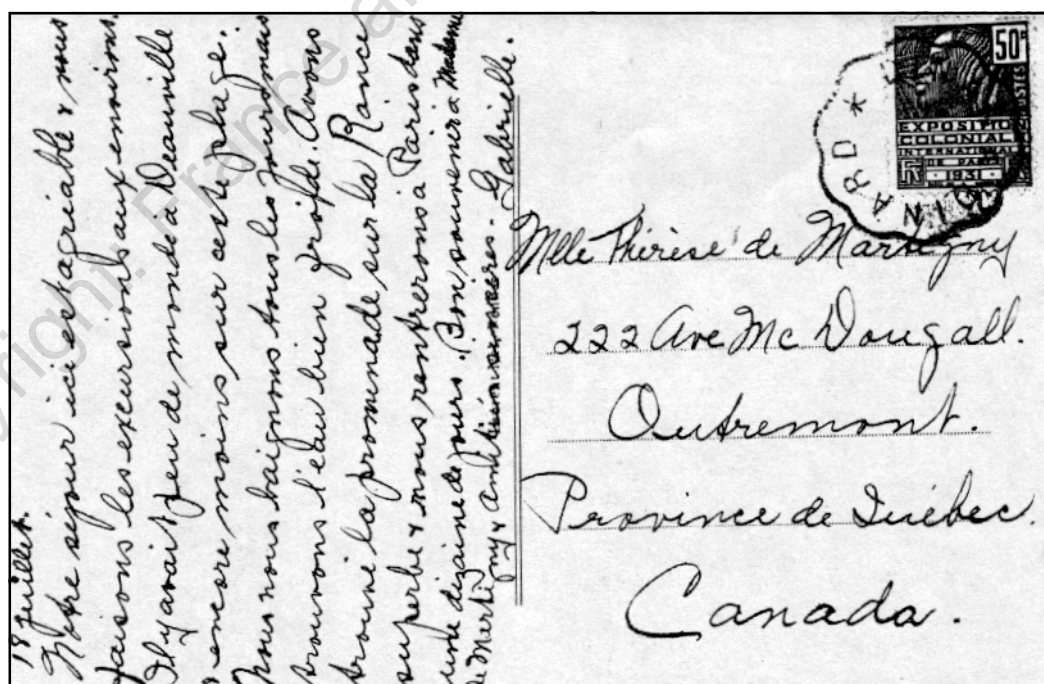 18 juillet.
Notre séjour ici est agréable & nous
faisons les excursions aux environs.
Il y avait peu de monde à Deauville
& encore moins sur cette plage.
Nous nous baignons tous les jours mais
trouvons l'eau bien froide. Avons
trouvé la promenade sur la Rance
superbe & nous rentrerons à Paris dans
une dizaine de jours. Bon souvenir à Madame
de Martigny & amitiés sincères. Gabrielle.
50c
POSTES
EXPOSITIO
COLONIAL
INTERNATIONAL
DE PARIS
1931
INARD *
Mlle Thérèse de Martigny
222 Ave Mc Dougall.
Outremont.
Province de Québec.
Canada.
right. France a